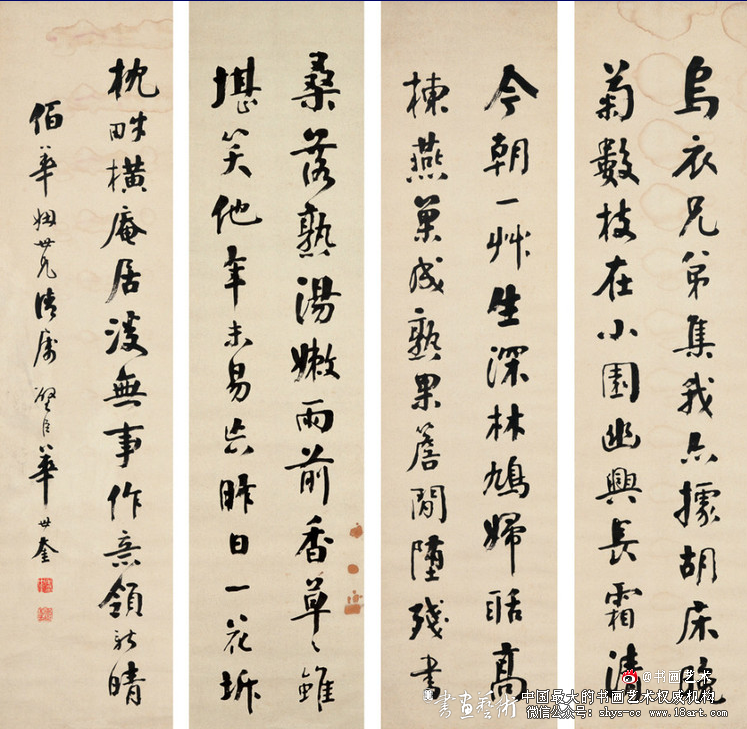 烏衣兄弟集我亦據胡床晚
菊數枝在小園幽興長霜清
今朝一艸生深林鳩婦聒高
棟燕巢成熟果簷間墮殘書
桑落熟湯嫩雨前香草々雖
堪笑他年未易忘昨日一花坼
枕畔橫庵居復無事作意領新晴
佰華姻世兄清屬 璧臣華世奎
@书画艺术
書畫藝術
中国最大的书画艺术权威机构
微信公众号: shys-cc www.18art.com